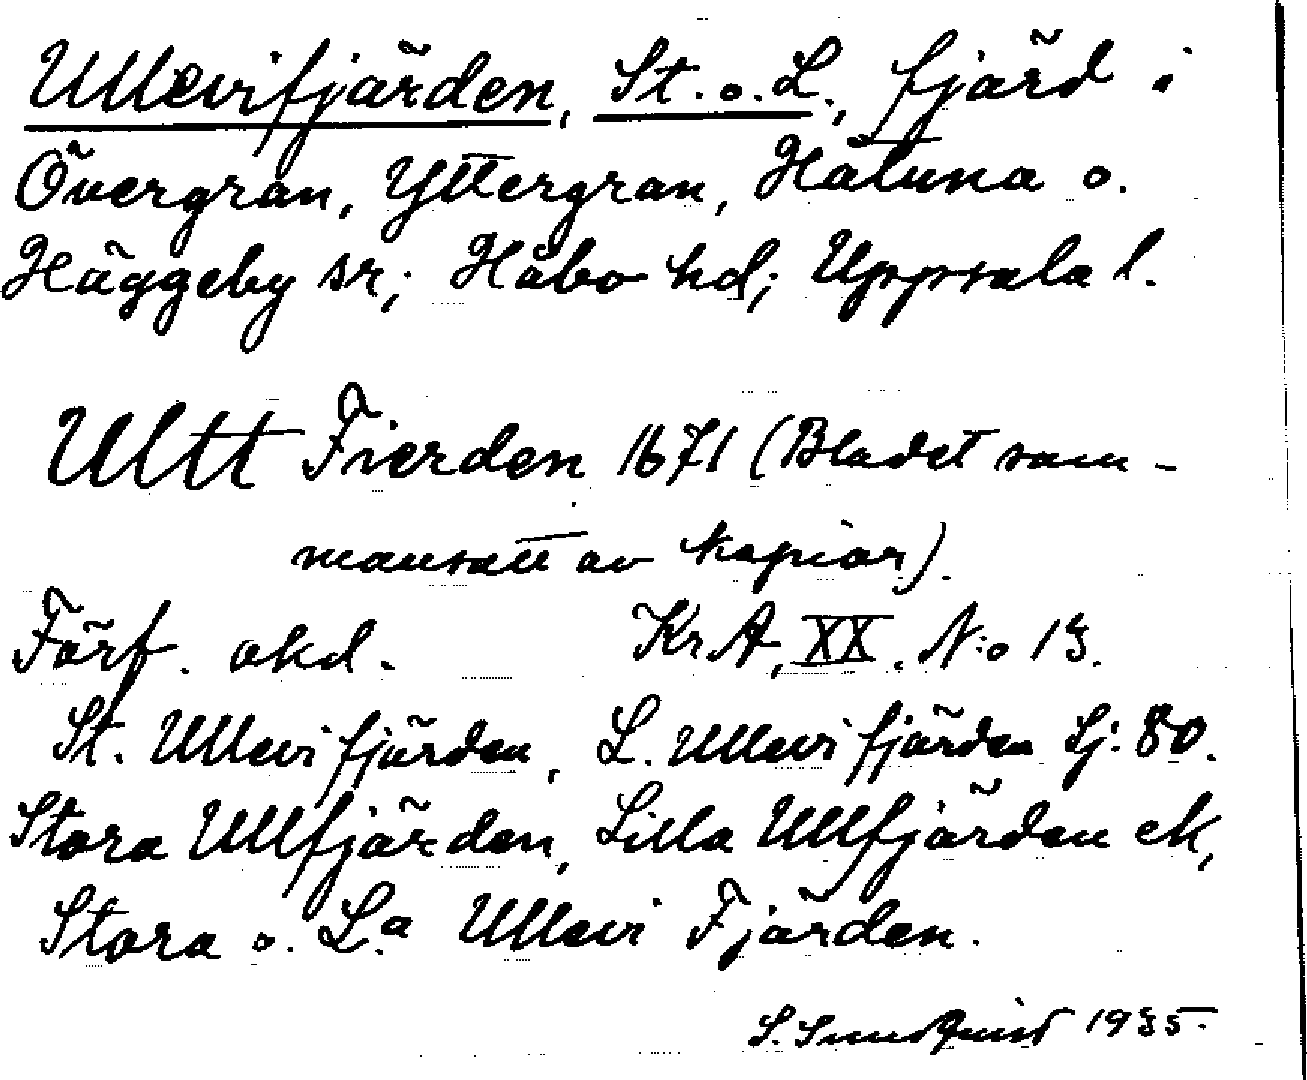 Ullevifjärden, St. o. L., fjärd i
Övergran, Yttergran, Håtuna o.
Häggeby sr; Håbo hd; Uppsala l.
Ultt Fierden 1671 (Bladet sam-
mansatt av kopior)
Förf. okd. Kr A, XX. N:o 13.
St. Ullevifjärden, L. Ullevifjärden Sj: 80.
Stora Ullfjärden, Lilla Ullfjärden ek,
Stora o. L:a Ullevi Fjärden.
S. Sundquist 1935.